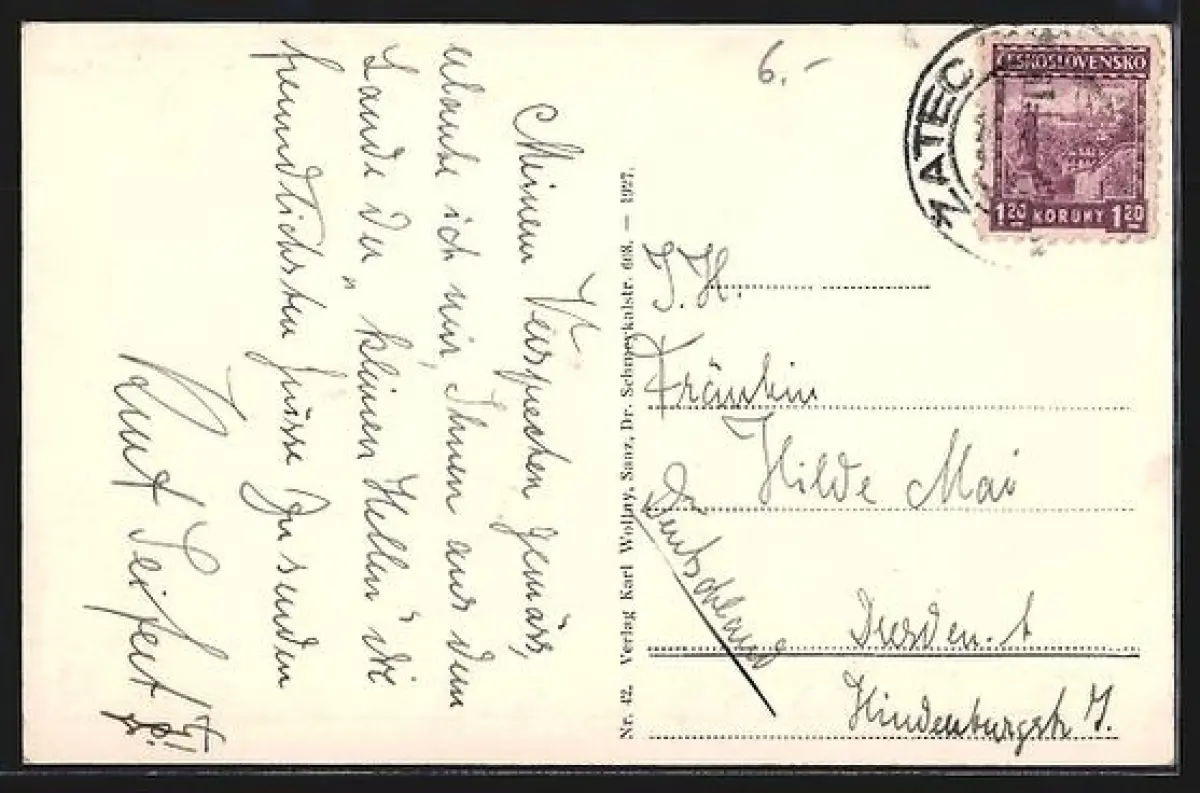 Meinem Versprechen gemäss,
erlaube ich mir, Ihnen aus dem
Lande der „kleinen Hellen" die
freundlichsten Grüsse zu senden
Kurt Seifert
Nr. 42. Verlag Karl Wollny, Saaz, Dr. Schmeykalstr. 608. — 1927.
6.-
ŽATEC
ČESKOSLOVENSKO
1 20 KORUNY 1 20
I. H.
Fräulein
Hilde Mai
Deutschland
Dresden. A
Hindenburgstr 7.